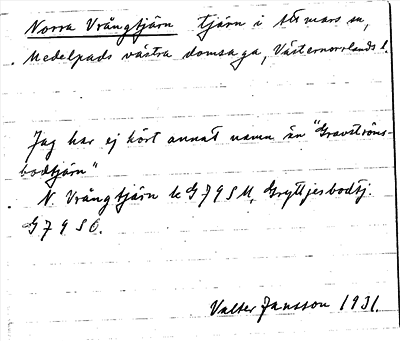 Norra Vrångtjärn tjärn i Attmars sn,
Medelpads västra domsaga, Västernorrlands l.
Jag har ej hört annat namn än "Gravströms-
bodtjärn"
N. Vrångtjärn te G79SM, Gryttjesbodtj.
G79SÖ.
Valter Jansson 1931.